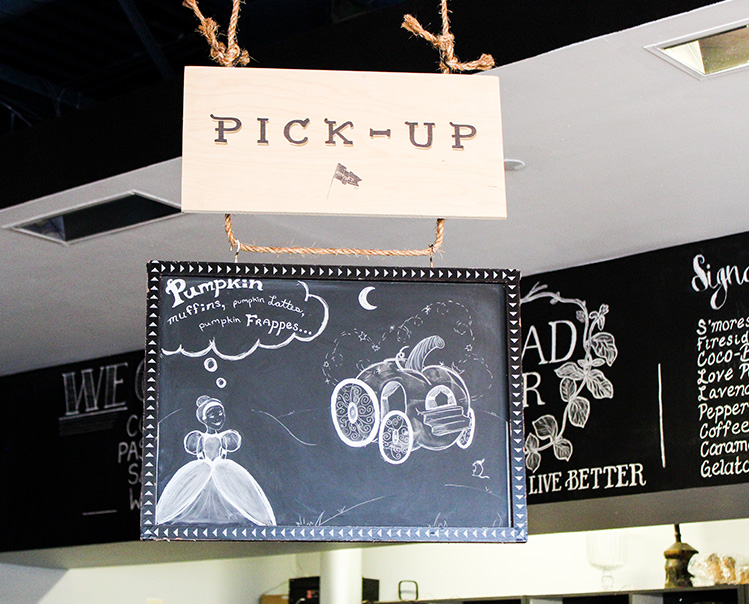 PICK-UP
Pumpkin
muffins, pumpkin Lattes,
pumpkin FRAPPES...
WE
AD
R
LIVE BETTER
Signa
S'mores
Firesid
Coco-
Love P
Lavend
Pepper
Coffee
Carame
Gelato